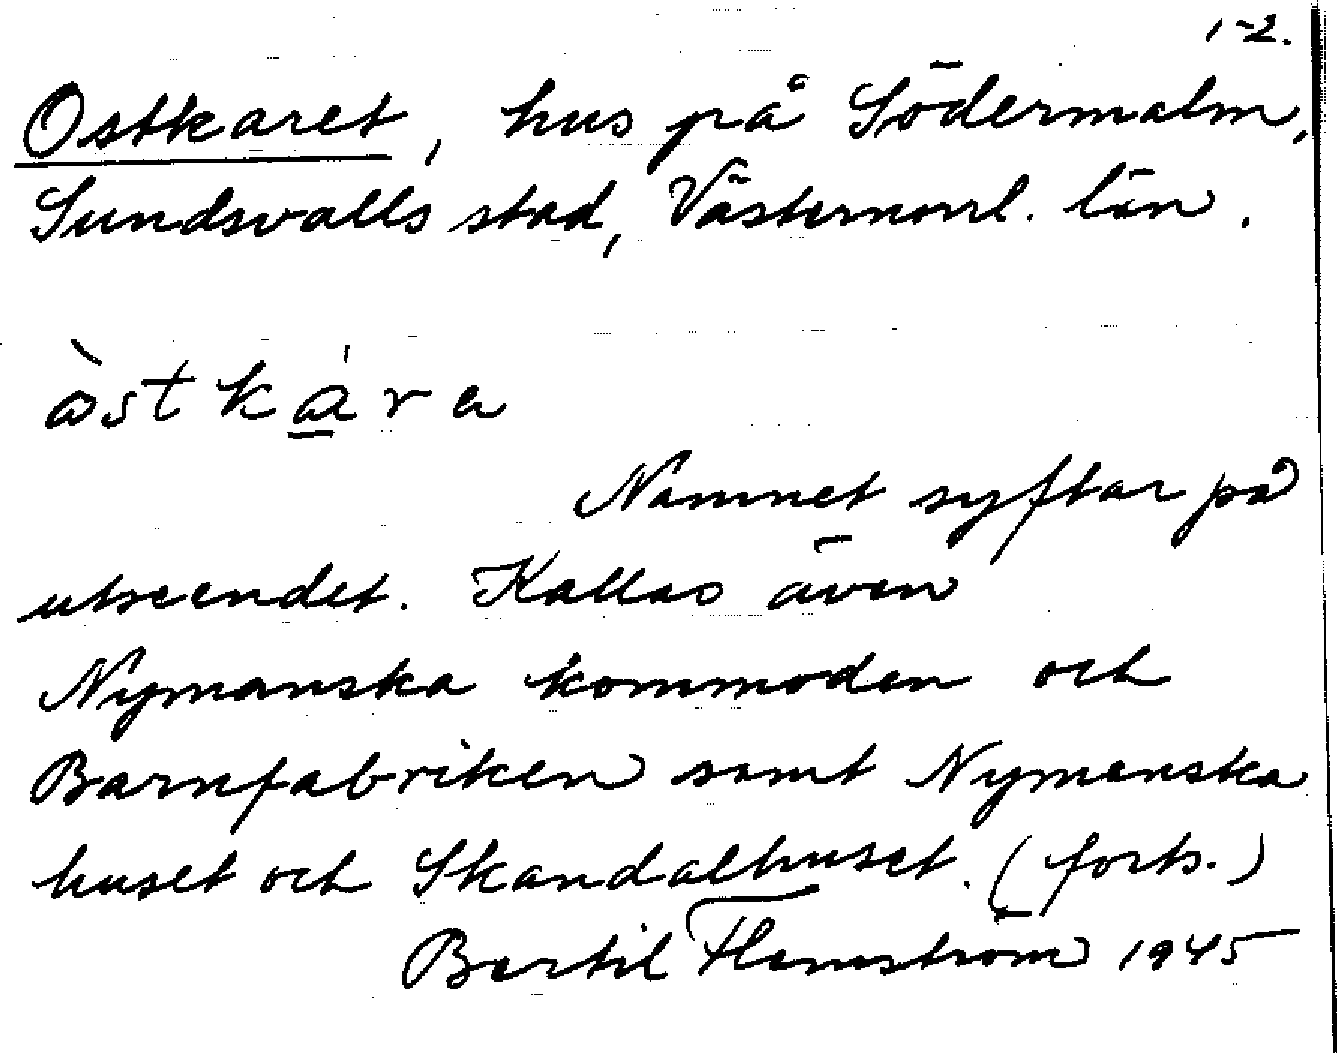 1-2.
Ostkaret, hus på Södermalm,
Sundsvalls stad, Västernorrl. län.
òstkára
Namnet syftar på
utseendet. Kallas även
Nymanska kommoden och
Barnfabriken samt Nymanska
huset och Skandalhuset. (forts.)
Bertil Flemström 1945